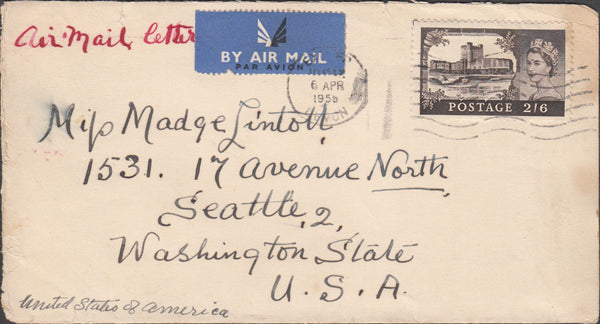 Air Mail letter
BY AIR MAIL
PAR AVION
6 APR
1956
POSTAGE 2/6
Miss Madge Lintott
1531. 17 Avenue North
Seattle, 2,
Washington State
U. S. A.
United States of America